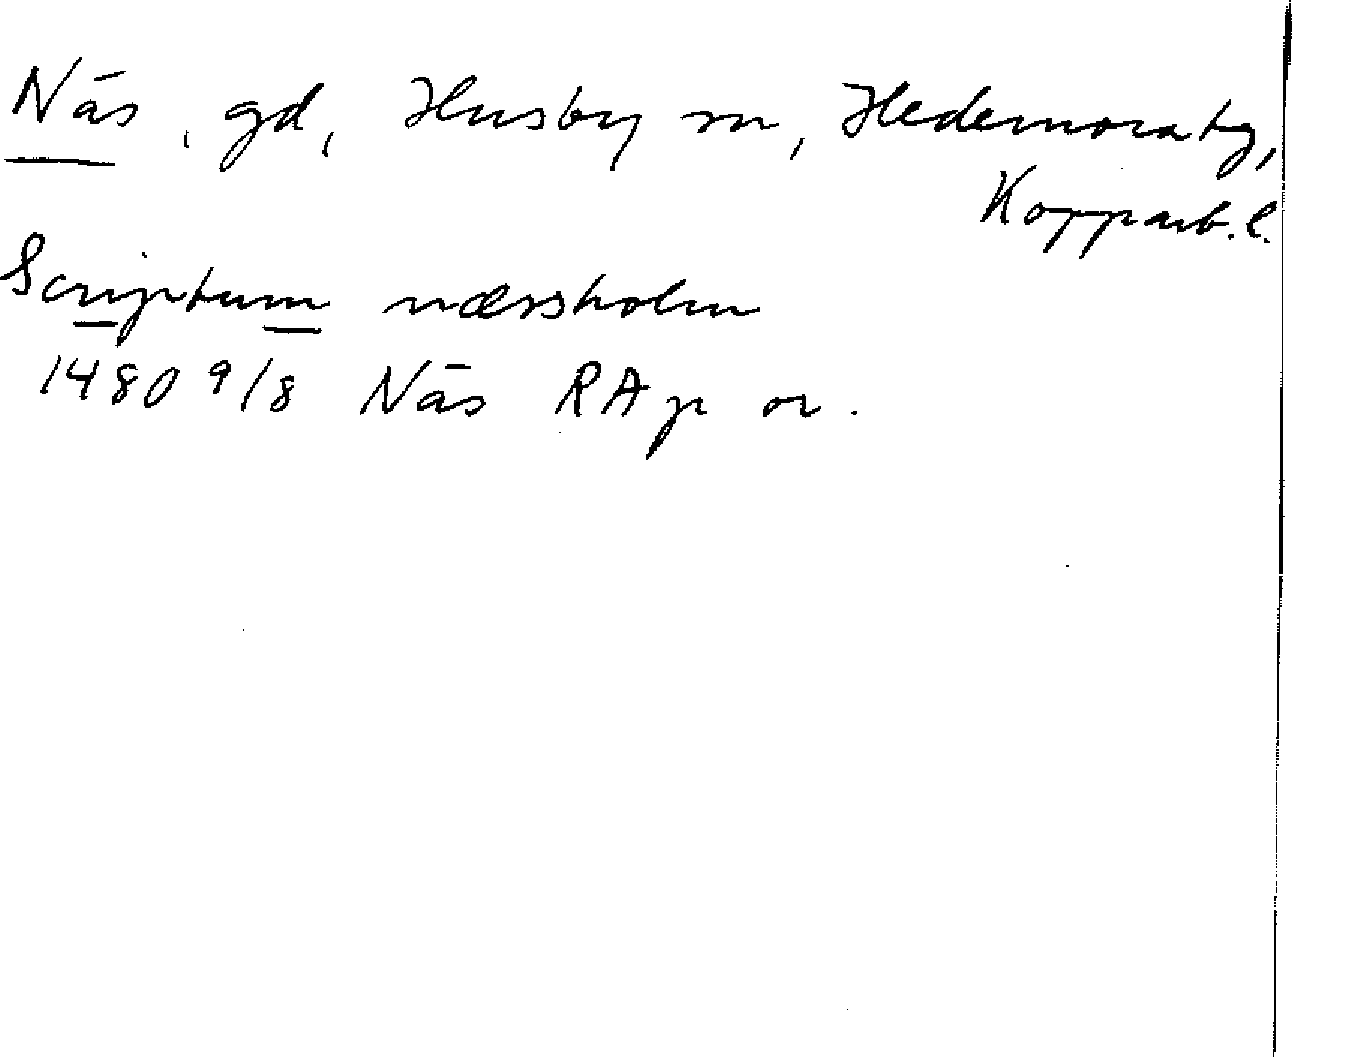 Näs, gd, Husby sn, Hedemora tg,
Kopparb. l.
Scriptum næssholm
1480 9/8 Näs RAp or.